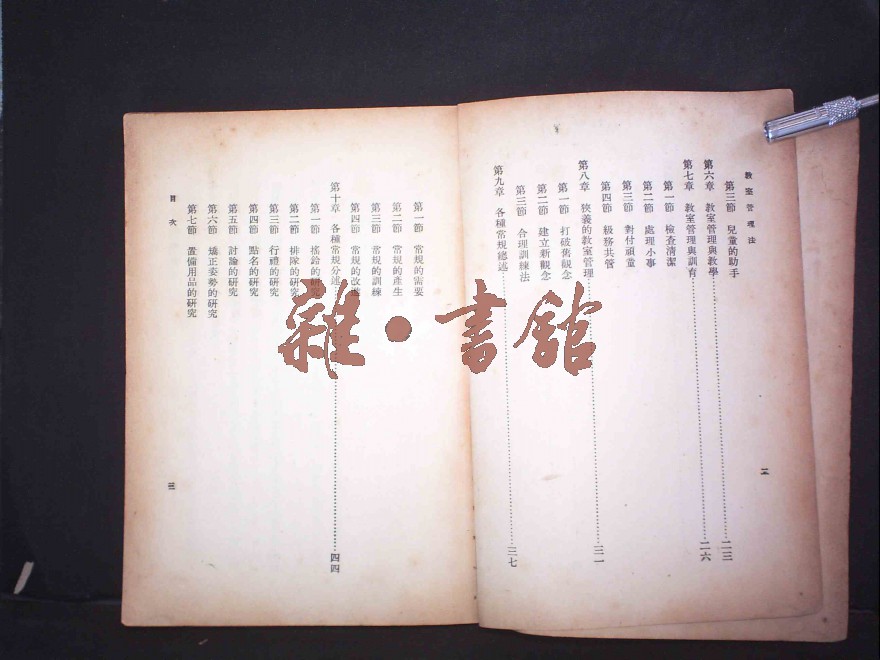 教室管理法
第三節 兒童的助手
第六章 教室管理與教學……二三
第七章 教室管理與訓育……二六
第一節 檢查清潔
第二節 處理小事
第三節 對付頑童
第四節 級務共管
第八章 狹義的教室管理……三一
第一節 打破舊觀念
第二節 建立新觀念
第三節 合理訓練法
第九章 各種常規總述……三七
二
第一節 常規的需要
第二節 常規的產生
第三節 常規的訓練
第四節 常規的改進
第十章 各種常規分述……四四
第一節 搖鈴的研究
第二節 排隊的研究
第三節 行禮的研究
第四節 點名的研究
第五節 討論的研究
第六節 矯正姿勢的研究
第七節 置備用品的研究
目次
三
雜·書館